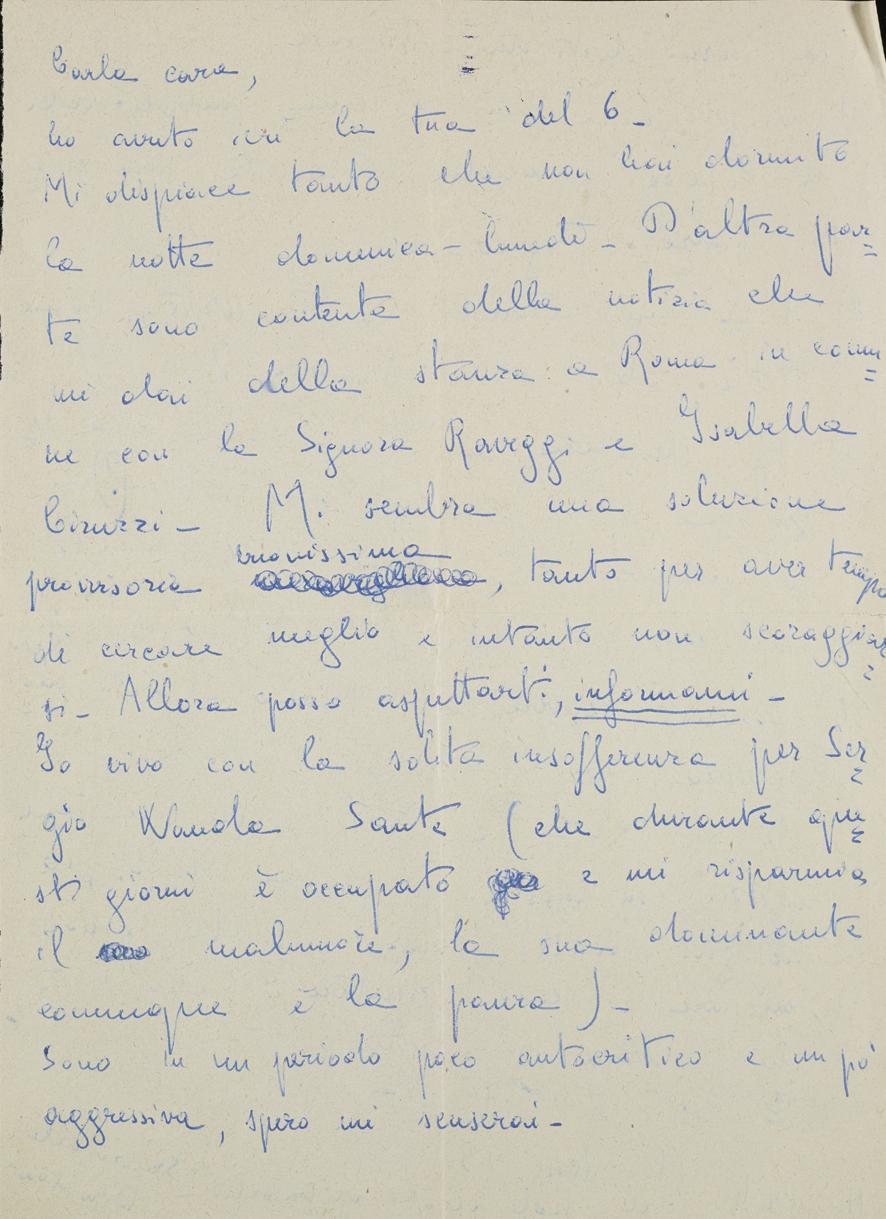 Carla cara,
ho avuto ieri la tua del 6 -
Mi dispiace tanto che non hai dormito
la notte domenica - lunedì - D'altra par=
te sono contenta della notizia che
mi dai della stanza a Roma in comu=
ne con la Signora Raveggi e Isabella
- Mi sembra una soluzione
provvisoria buonissima, tanto per aver tempo
di cercare meglio e intanto non scoraggiar=
si - Allora posso aspettarti, informami -
Io vivo con la solita insofferenza per Ser=
gio Wanda Sante (che durante que=
sti giorni è occupato e mi risparmia
il malumore, la sua dominante
comunque è la paura) -
Sono in un periodo poco autocritico e un po'
aggressiva, spero mi scuserai -